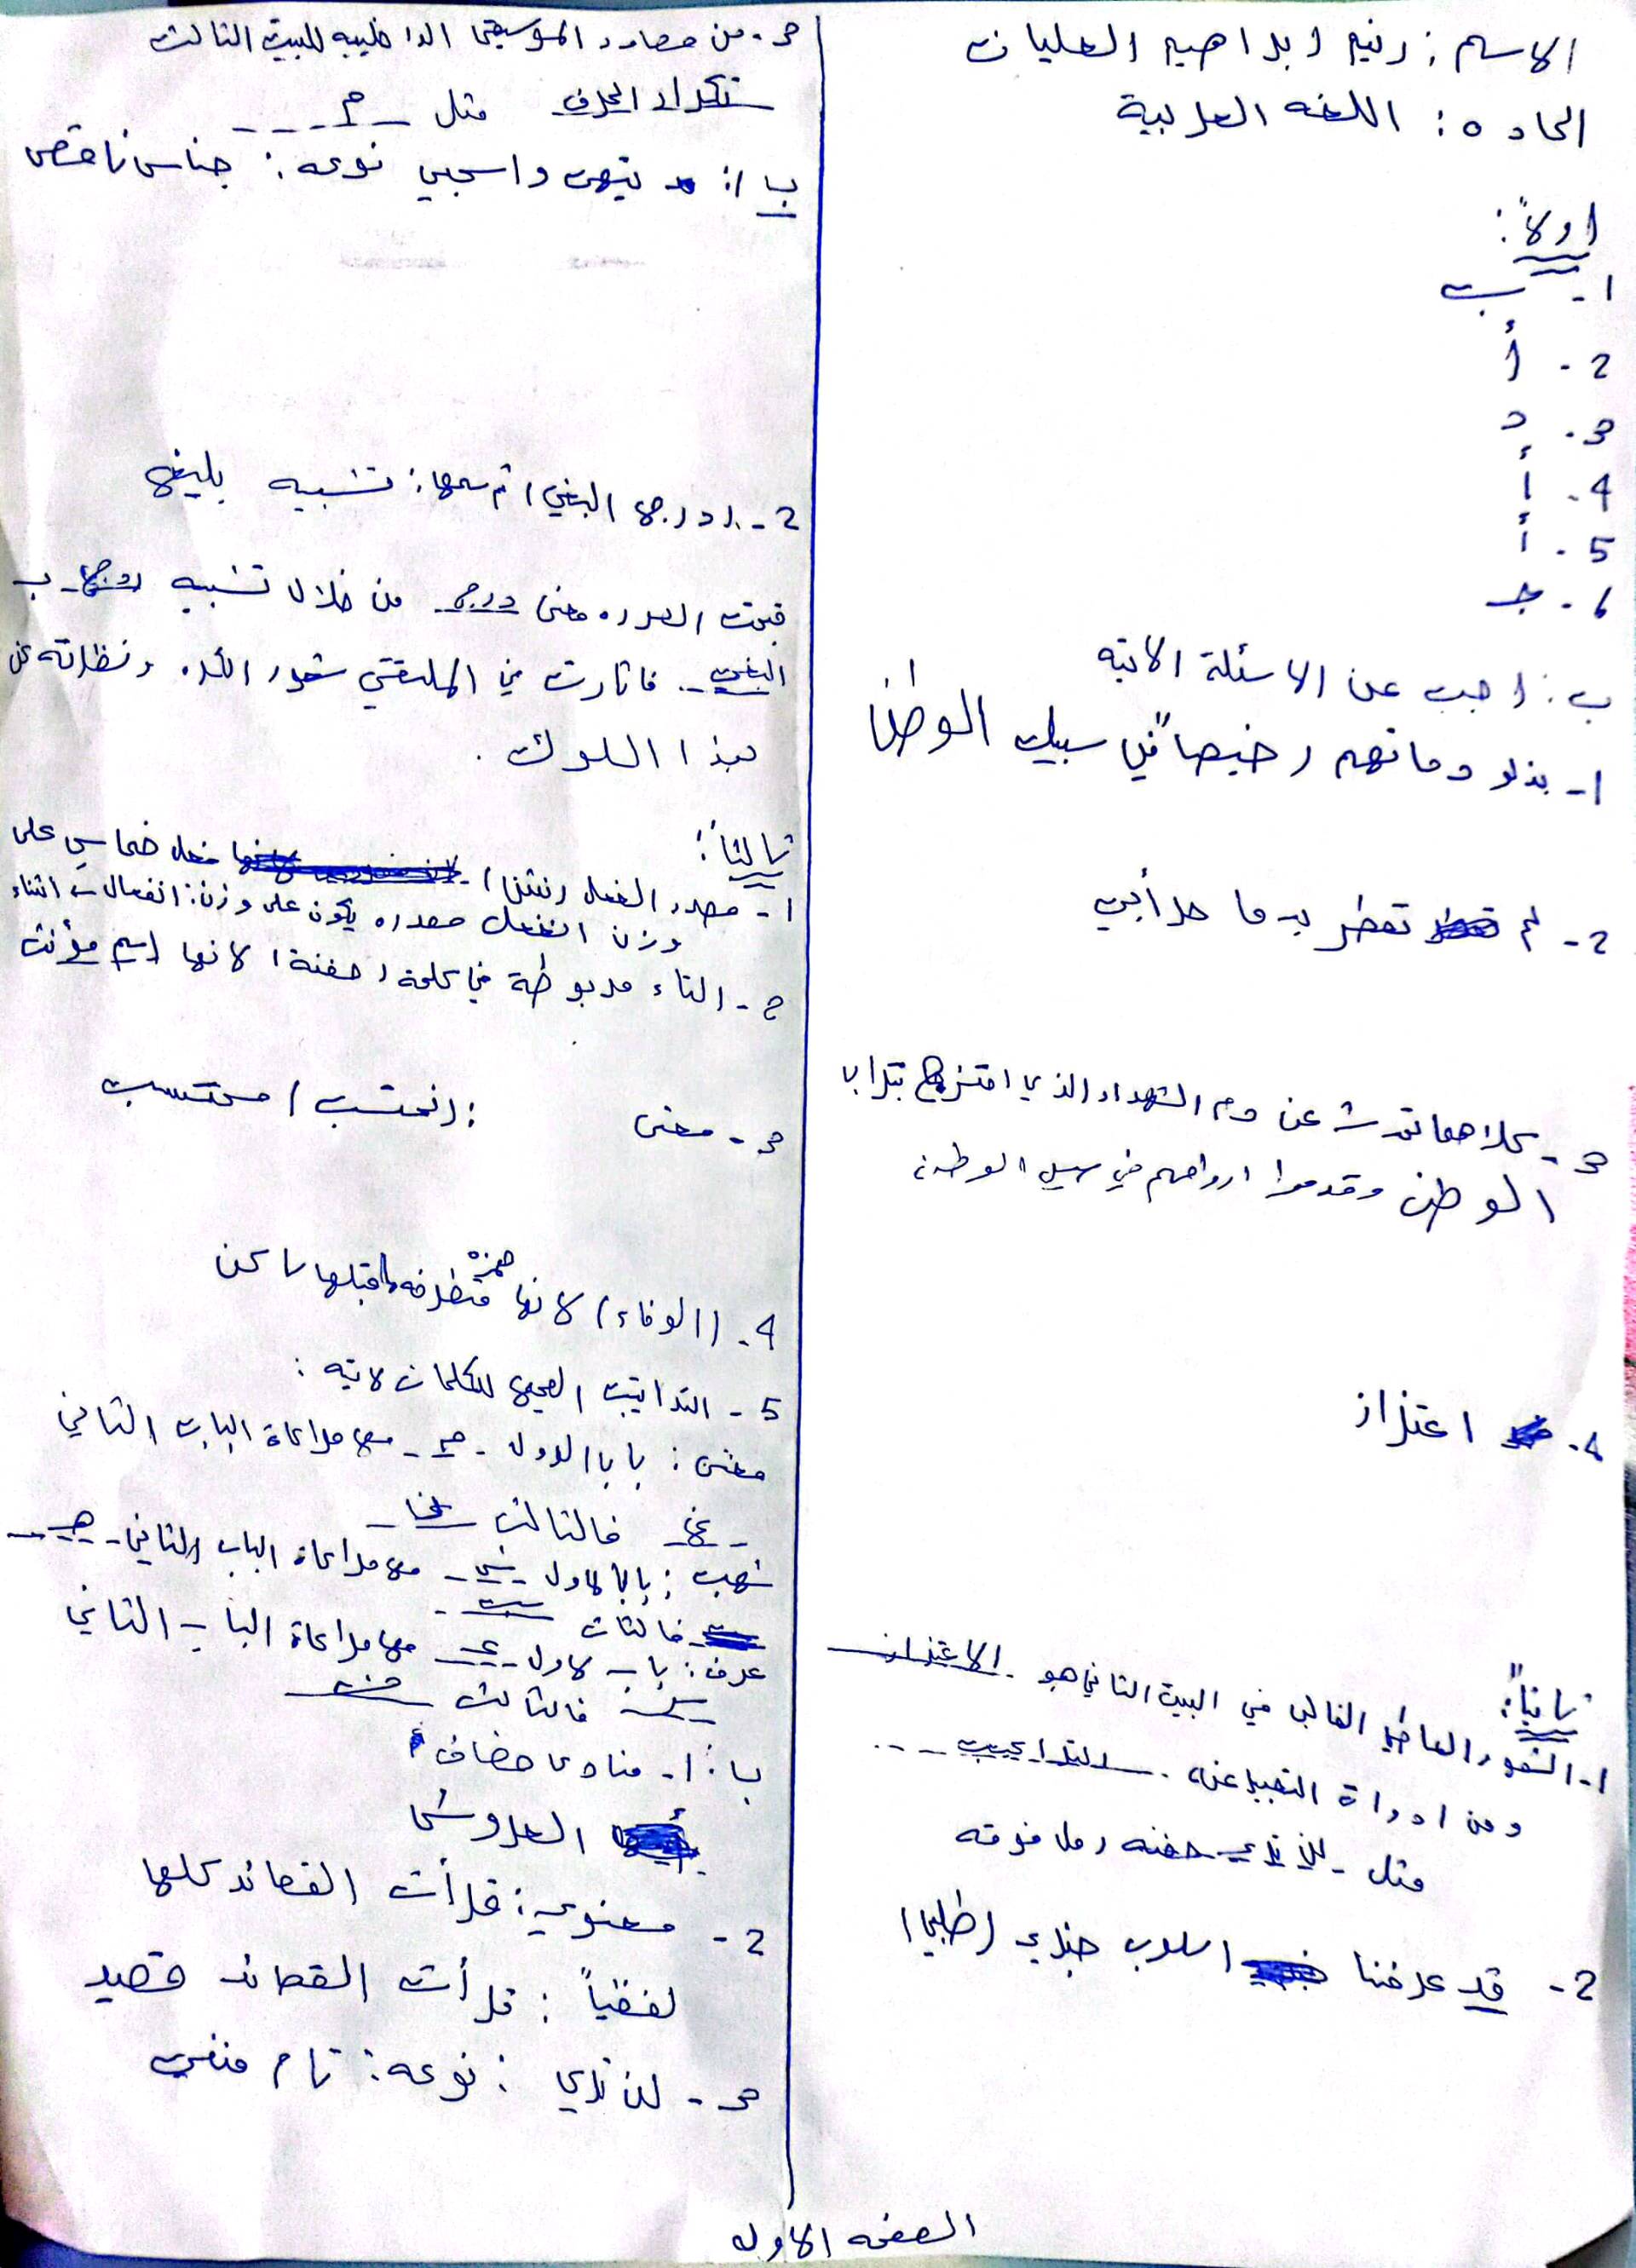 الاسم : رنيم ابراهيم العليان
الماده : اللغه العربية
اولاً :
1- ب
2- أ
3- د
4- أ
5- أ
6- جـ
ب : اجب عن الاسئلة الاتيه
1- بذلو دمائهم رخيصاً في سبيل الوطن
2- لم تمطر بدما حرأبي
3- كلاهما تحدث عن دم الشهداء الذي امتزج بتراب
الوطن وقدموا ارواحهم في سبيل الوطن
4- اعتزاز
ثانياً :
1- الشعور العاطفي الغالب في البيت الثاني هو الاعتزاز
ومن ادواة التعبير عنه التراكيب ...
مثل للأيادي حفنه رمل فوقه
2- قد عرفنا اسلوب خبري (طلبي)
3- من مصادر الموسيقى الداخليه للبيت الثالث
تكرار الحرف مثل م
ب 1: يتيهى واسجبي نوعه : جناس ناقص
2- (دربها البغي) اسمها : تشبيه بليغ
قبحت الصوره معنى من خلال تشبيه ب
البغي فاثارت في الملتقي شعور الكره ونظراته عن
هذا السلوك .
ثالثاً :
1- مصدر الفعل (نثنى) فعل خماسي على
وزن انفعل مصدره يكون على وزن : انفعال ← انثناء
2- التاء مربوطة في كلمة (حفنة) لانها اسم مؤنث
3- معنى : (نحتسب) محتسب
4- (الوفاء) لانها همزه متطرفه ماقبلها ساكن
5- التراتيب الصحيح للكلمات لاتيه :
مغنى : باب الاول م مع مراعاة الباب الثاني
غ فالثالث
شهب : باب الاول ش مع مراعاة الباب الثاني هـ
فالثالث ب
عرف : باب لاول ع مع مراعاة الباب الثاني
ر فالثالث ف
ب : 1- منادى مضاف
العروش
2- معنوي : قرأت القصائد كلها
لفظياً : قرأت القصائد قصيد
3- لن نرى : نوعه : تام منفي
الصفحه الاوله